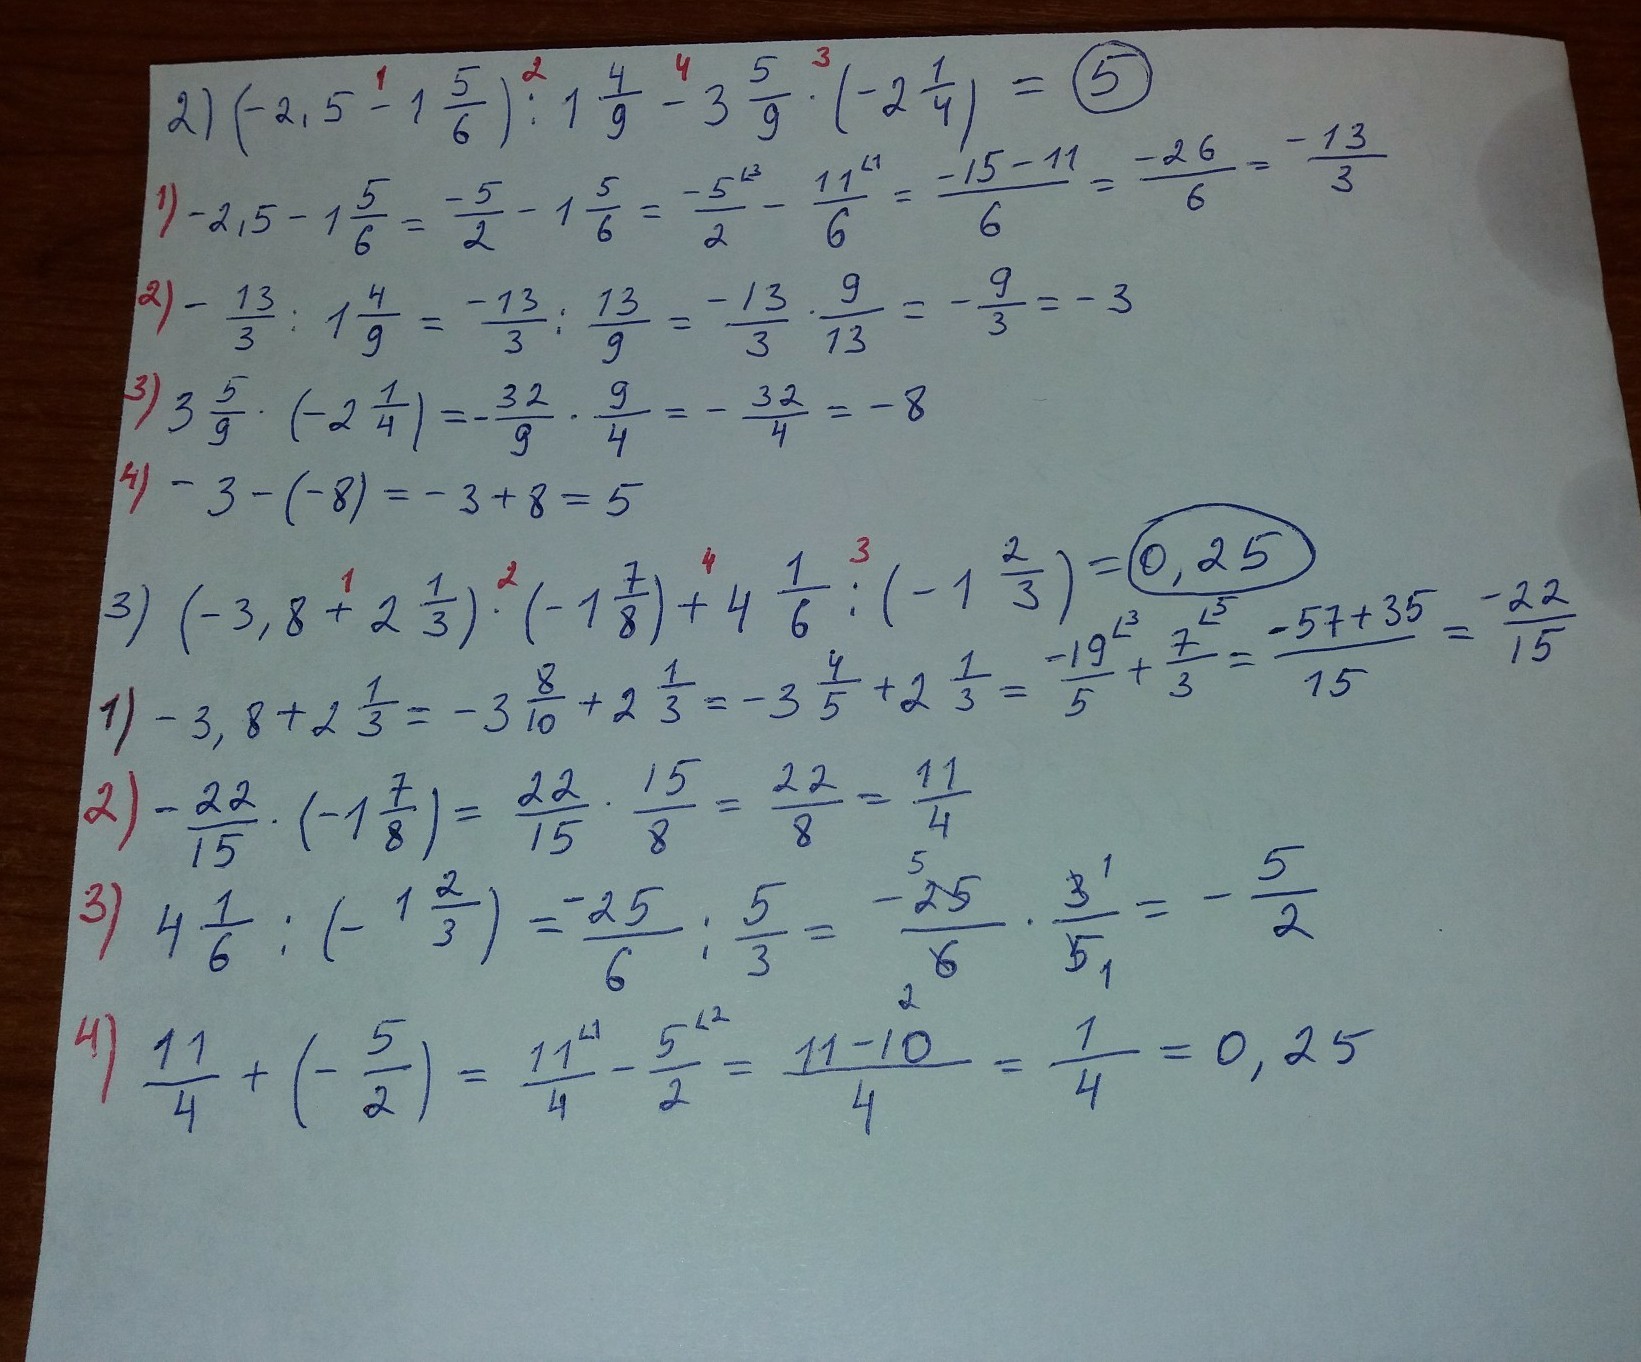 2) (-2,5 - 1 5/6) : 1 4/9 - 3 5/9 · (-2 1/4) = 5
1) -2,5 - 1 5/6 = -5/2 - 1 5/6 = -5/2 - 11/6 = (-15-11)/6 = -26/6 = -13/3
2) -13/3 : 1 4/9 = -13/3 : 13/9 = -13/3 · 9/13 = -9/3 = -3
3) 3 5/9 · (-2 1/4) = -32/9 · 9/4 = -32/4 = -8
4) -3 - (-8) = -3 + 8 = 5
3) (-3,8 + 2 1/3) · (-1 7/8) + 4 1/6 : (-1 2/3) = 0,25
1) -3,8 + 2 1/3 = -3 8/10 + 2 1/3 = -3 4/5 + 2 1/3 = -19/5 + 7/3 = (-57+35)/15 = -22/15
2) -22/15 · (-1 7/8) = 22/15 · 15/8 = 22/8 = 11/4
3) 4 1/6 : (-1 2/3) = -25/6 : 5/3 = -25/6 · 3/5 = -5/2
4) 11/4 + (-5/2) = 11/4 - 5/2 = (11-10)/4 = 1/4 = 0,25